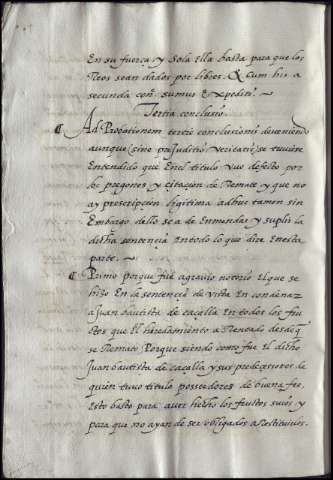 En su fuerça y sola ella basta para que los
Reos sean dados por libres. & cum his a
secunda con. sumus Expediti.
Tertia conclusio.
Ad Probationem tertie conclusionis deveniendo
aunque (sine prejuditio veritatis) se tuviere
Entendido que En el titulo vuo defecto por
los pregones y citaçion de Remate y que no
ay prescripcion ligitima adhuc tamen sin
Embargo dello se a de Enmendar y suplir la
dicha sentencia En todo lo que dize En esta
parte.
Primo porque fue agravio notorio El que se
hizo En la sentencia de vista En condenar
a Juan bautista de caçalla En todos los fru
tos que El heredamiento a Rentado desde q
se Remato Porque siendo como fue El dicho
Juan bautista de caçalla y sus predecesores de
quien tuvo titulo posseedores de buena fee
Esto basto para aver hecho los fructos suios y
para que no ayan de ser obligados a Restituirlos